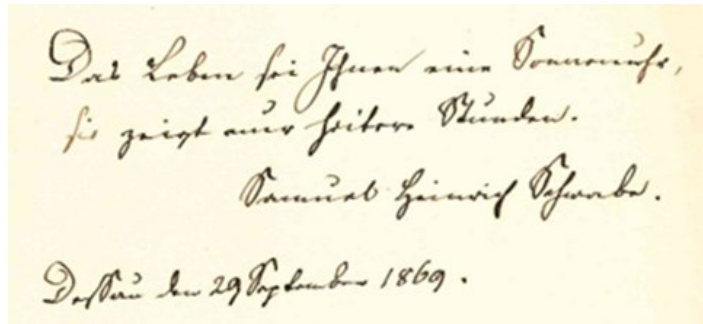 Das Leben sei Ihnen eine Sonnenuhr,
sie zeigt nur heitere Stunden.
Samuel Heinrich Schwabe.
Dessau den 29 September 1869.